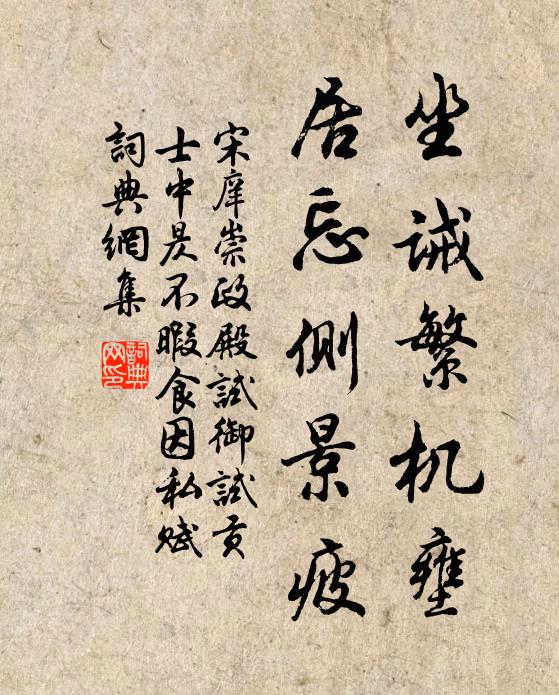 坐誡繁机壅
居忘側景疲
宋庠崇政殿試御試貢
士中昃不暇食因私賦
詞典網集
詞典
网印